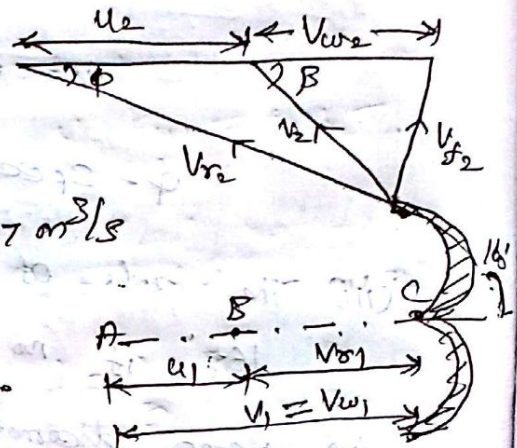 u₂ V_w₂
φ β
V_r₂ V₂ V_f₂
7 m³/s
A B C
u₁ V_r₁
V₁ = V_w₁